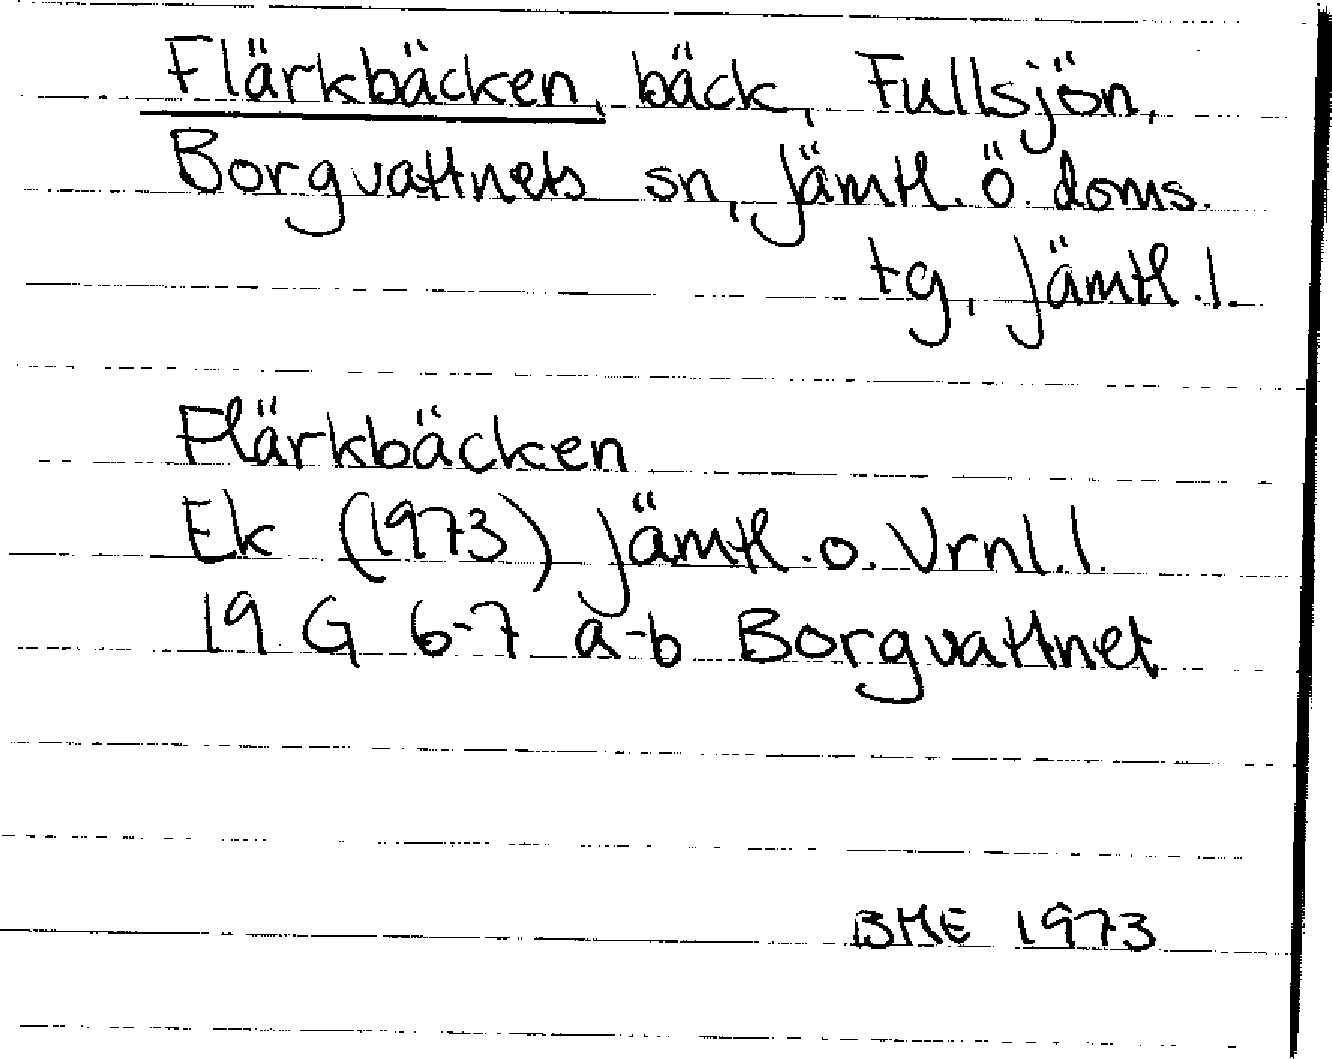 Flärkbäcken, bäck, Fullsjön,
Borgvattnets sn, Jämtl. ö. doms.
tg, Jämtl. l.
Flärkbäcken
Ek (1973) Jämtl. o. Vrnl. l.
19 G 6-7 a-b Borgvattnet
BME 1973